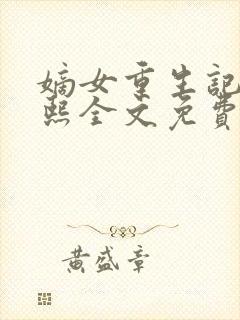 嫡女重生記
熙全文免費
黃盛章